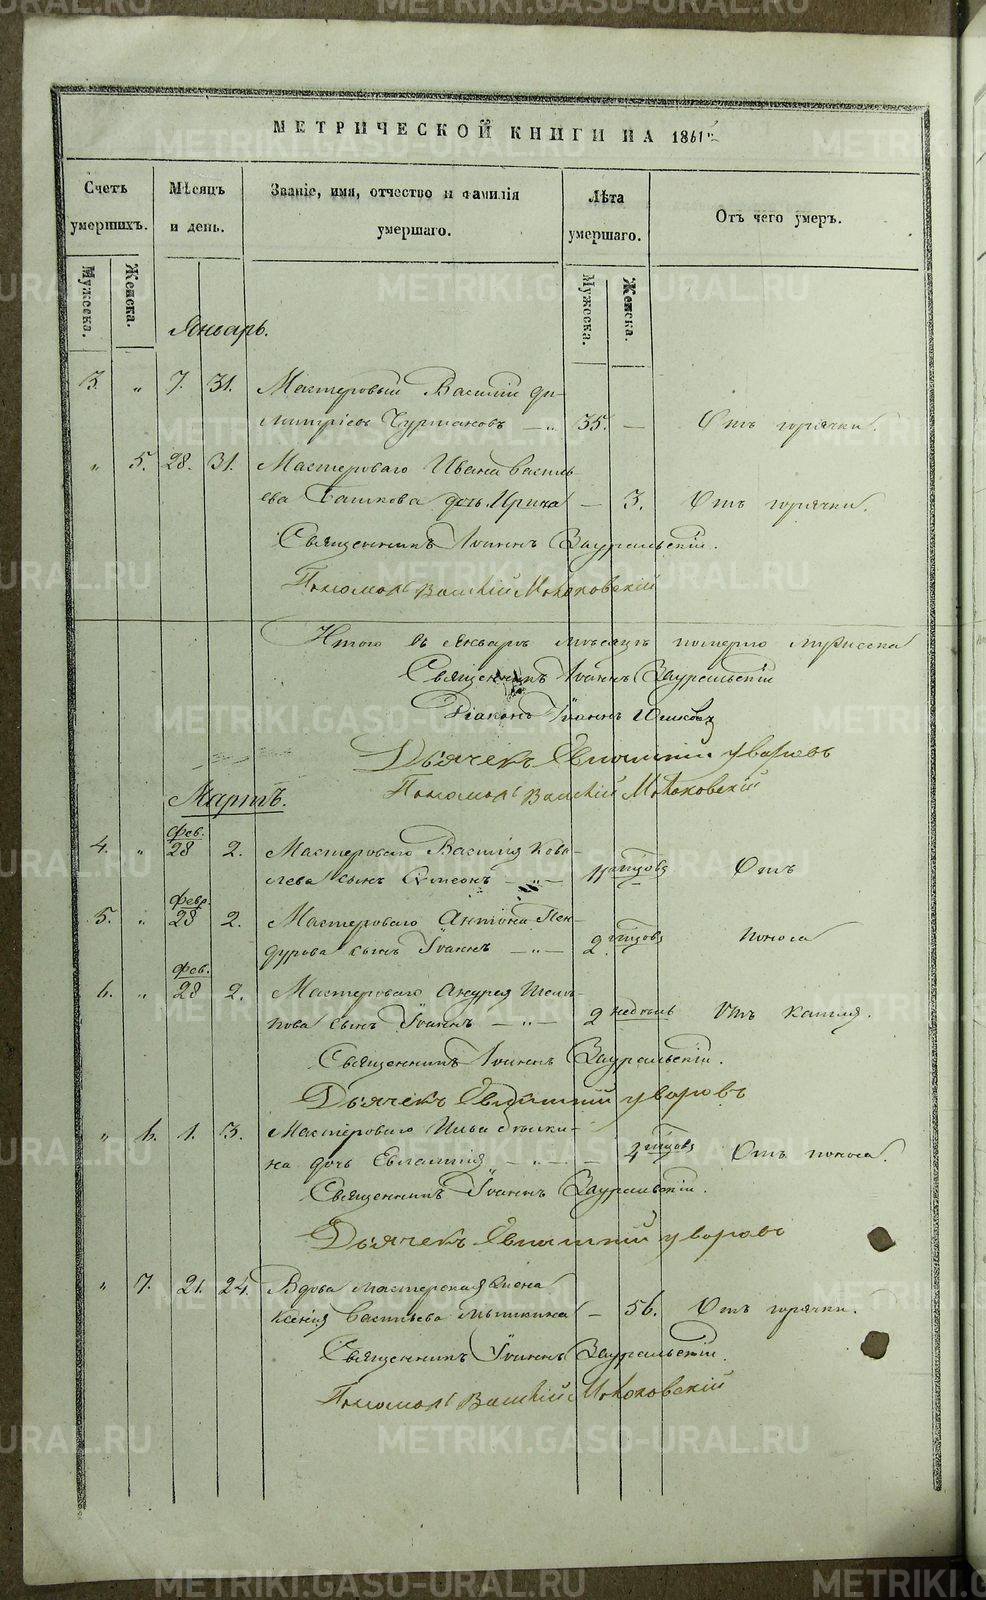 МЕТРИЧЕСКОЙ КНИГИ НА 1861й
Счетъ умершихъ.
Мѣсяцъ и день.
Званіе, имя, отчество и фамилія умершаго.
Лѣта умершаго.
Отъ чего умеръ.
Мужеска.
Женска.
Мужеска.
Женска.
Январь.
3. " 7. 31. Мастеровый Василій Ди-
митріевъ Чурмановъ — " 35. — Отъ горячки.
" 5. 28. 31. Мастероваго Ивана Василь
ева Сашкова дочь Ирина — 3. Отъ горячки.
Священникъ Іоаннъ Зауральскій.
Пономарь Василій Мохоковскій
Итого въ Январѣ мѣсяцѣ померло мужеска
Священникъ Іоаннъ Зауральскій
Діаконъ Іоаннъ Юшковъ
Дьячекъ Евлампій Уваровъ
Пономарь Василій Мохоковскій
Мартъ.
4. " Фев. 28 2. Мастероваго Василія Кова-
лева сынъ Симеонъ — " — 11 Отъ
5. " Февр. 28 2. Мастероваго Антона Пен-
дурова сынъ Іоаннъ — " — 2 поноса
6. " Фев. 28 2. Мастероваго Андрея
сынъ Іоаннъ — " — 2 недѣль Отъ кашля.
Священникъ Іоаннъ Зауральскій.
Дьячекъ Евлампій Уваровъ
" 6. 1. 3. Мастероваго Ильи
на дочь Евлампія — " — Отъ поноса.
Священникъ Іоаннъ Зауральскій.
Дьячекъ Евлампій Уваровъ
" 7. 21. 24. Вдова мастерская жена
Ксенія Васильева Мышкина — 56. Отъ горячки.
Священникъ Іоаннъ Зауральскій.
Пономарь Василій Мохоковскій
METRIKI.GASO-URAL.RU